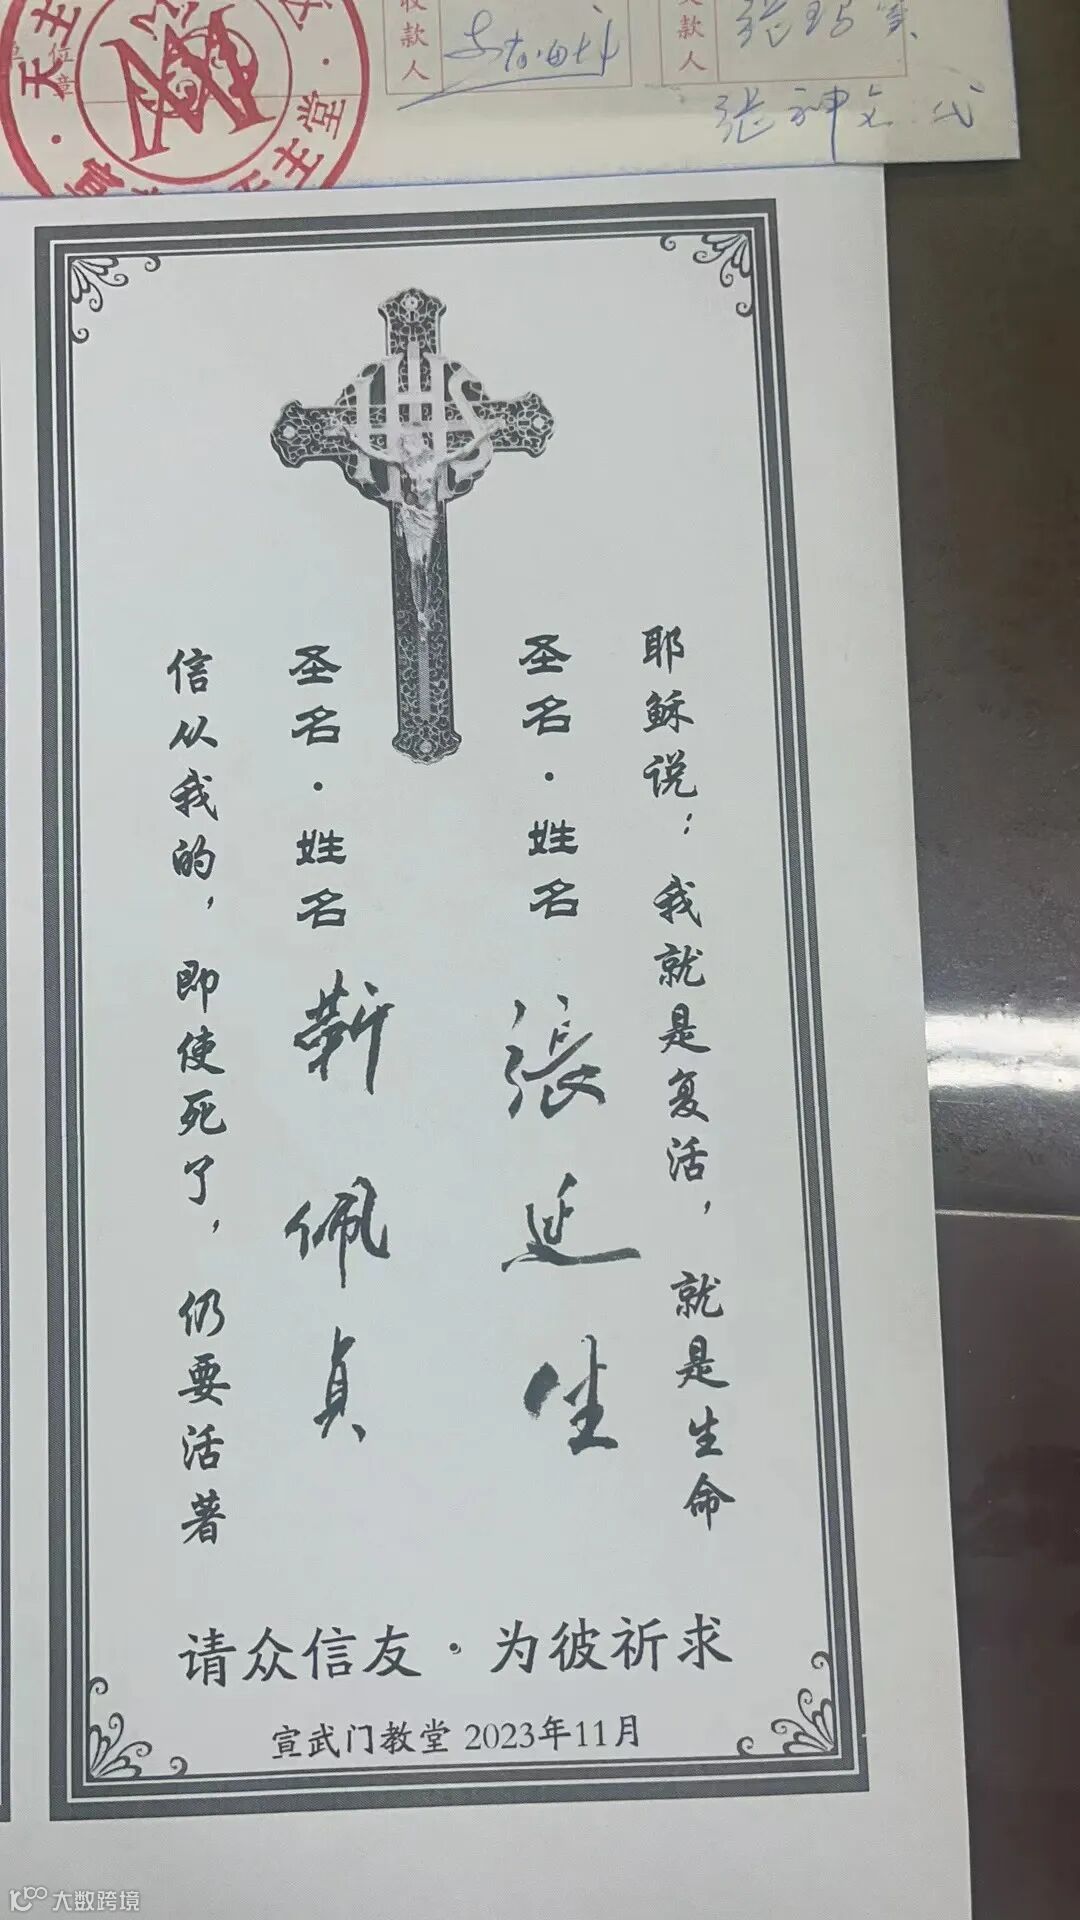 天主
堂
主
单位章
收款人
交款人
张神父代
IHS
耶稣说：我就是复活，就是生命
圣名·姓名 張延生
圣名·姓名 靳佩贞
信从我的，即使死了，仍要活著
请众信友·为彼祈求
宣武门教堂 2023年11月
大数跨境